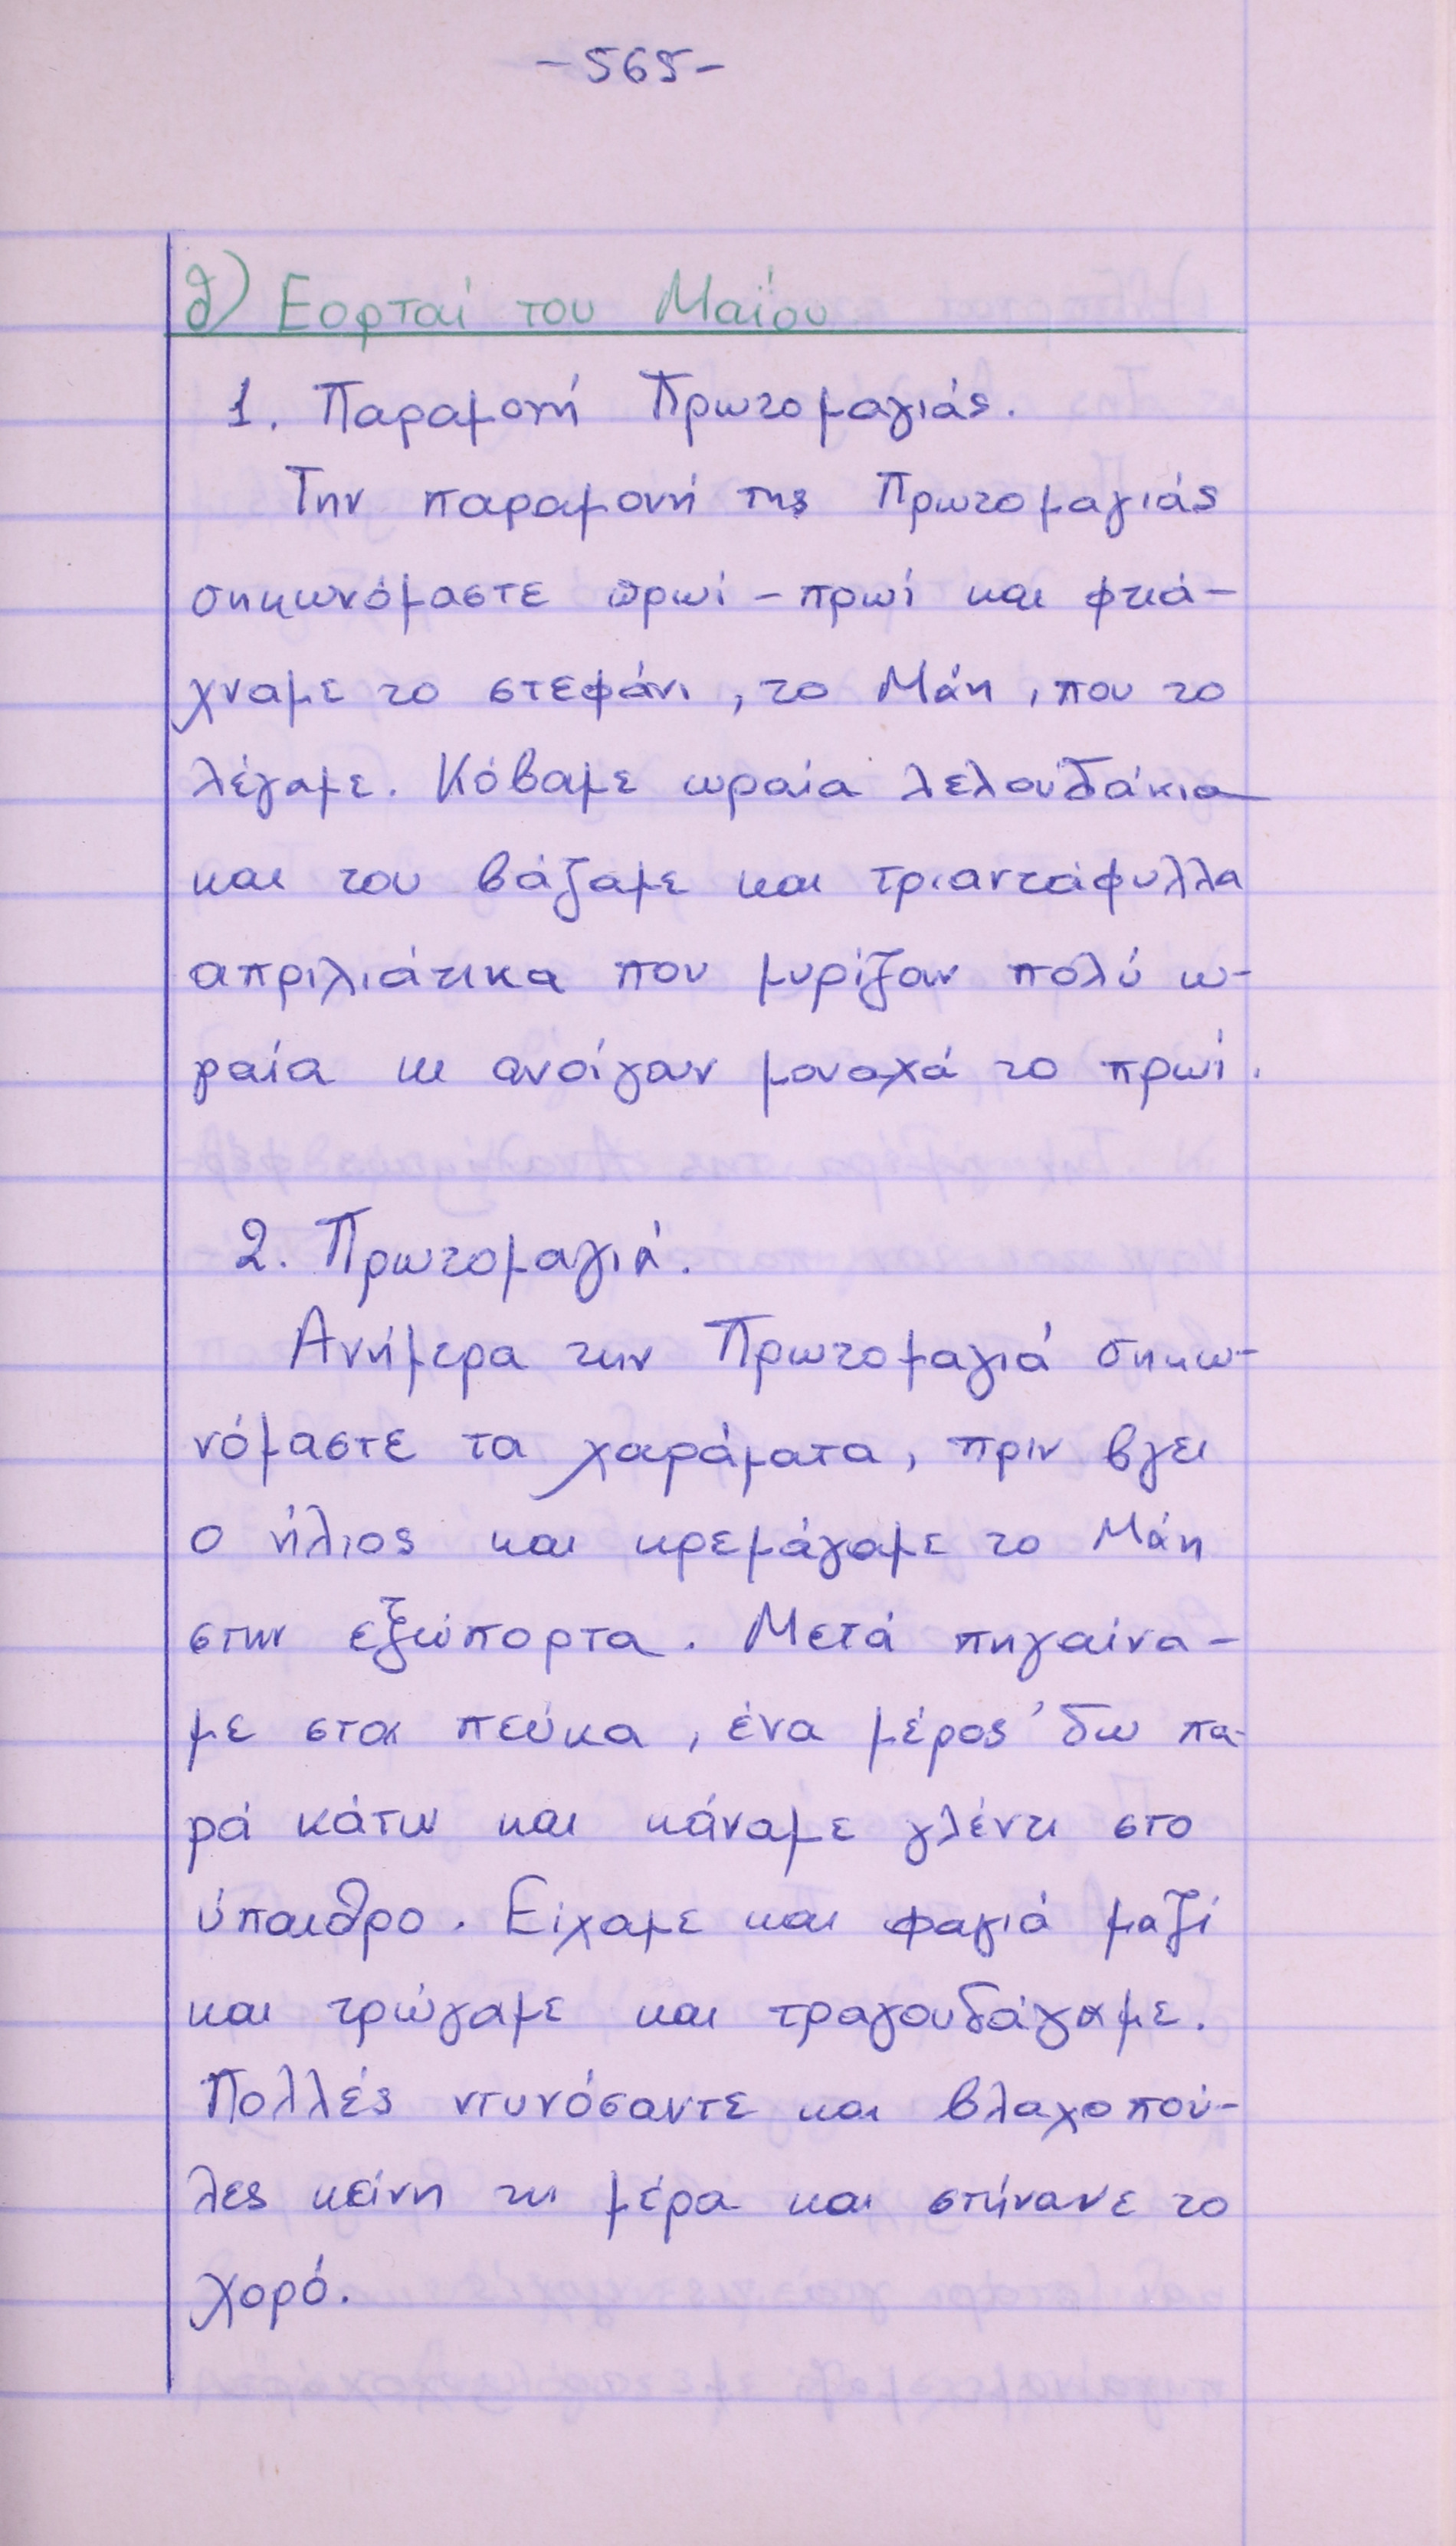 -565-
θ) Εορταί του Μαΐου
1. Παραμονή Πρωτομαγιάς.
Την παραμονή της Πρωτομαγιάς
σηκωνόμαστε πρωί-πρωί και φτιά-
χναμε το στεφάνι, το Μάη, που το
λέγαμε. Κόβαμε ωραία λελουδάκια
και του βάζαμε και τριαντάφυλλα
απριλιάτικα που μυρίζαν πολύ ω-
ραία κι ανοίγαν μοναχά το πρωί.
2. Πρωτομαγιά.
Ανήμερα την Πρωτομαγιά σηκω-
νόμαστε τα χαράματα, πριν βγει
ο ήλιος και κρεμάγαμε το Μάη
στην εξώπορτα. Μετά πηγαίνα-
με στα πεύκα, ένα μέρος 'δω πα-
ρά κάτω και κάναμε γλέντι στο
ύπαιθρο. Είχαμε και φαγιά μαζί
και τρώγαμε και τραγουδάγαμε.
Πολλές ντυνόσαντε και βλαχοπού-
λες κείνη τη μέρα και στήνανε το
χορό.